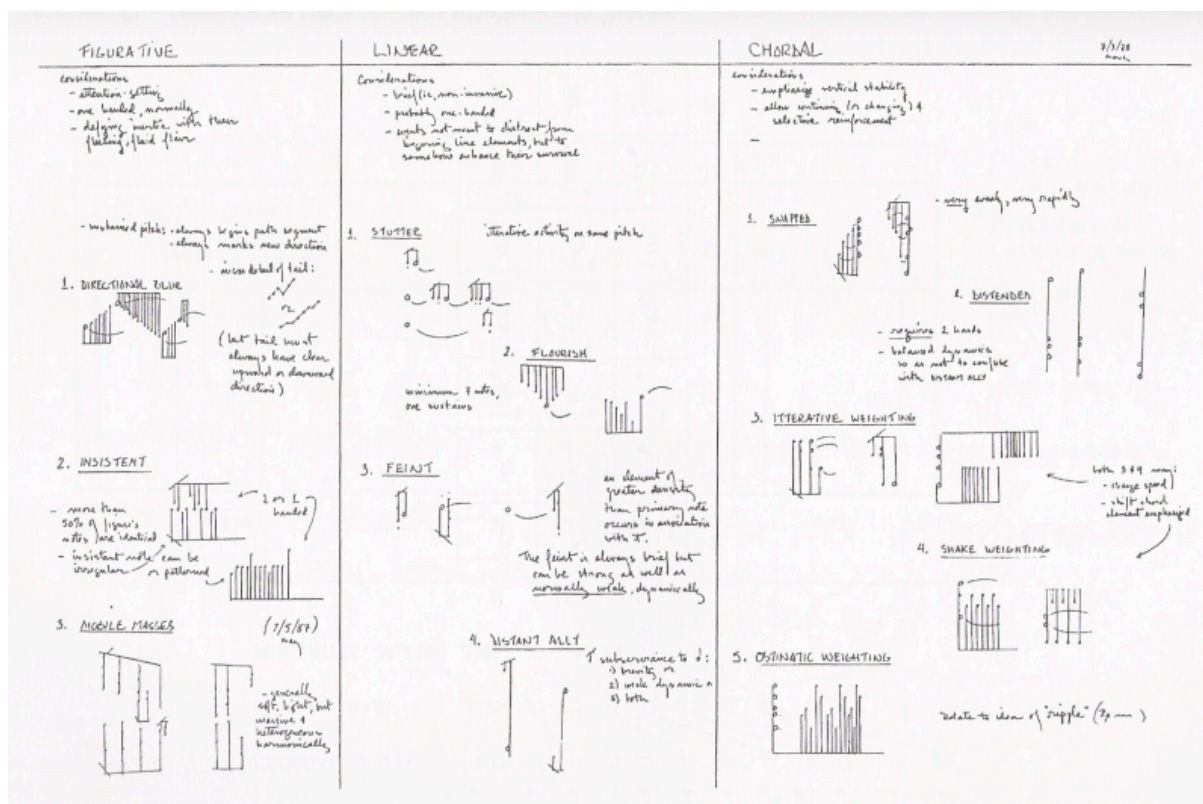 FIGURATIVE
considerations
- attention-getting
- one handed, normally
- defying inertia with their
fleeting, fluid flair
- sustained pitch: - always begins path segment
- always marks new direction
- microdetail of tail:
1. DIRECTIONAL BLUR
(but tail must
always have clear
upward or downward
direction)
2. INSISTENT
- more than
50% of figure's
notes are identical
- insistent note can be
irregular or patterned
2 or 1
handed
3. MOBILE MASSES
- generally
soft, light, but
massive &
heterogeneous
harmonically
LINEAR
Considerations
- brief (ie, non-invasive)
- probably one-handed
- events not meant to distract from
ongoing line elements, but to
somehow enhance their survival
1. STUTTER
iterative activity on same pitch
2. FLOURISH
minimum 7 notes,
one sustains
3. FEINT
an element of
greater density
than primary note
occurs in association
with it.
The feint is always brief but
can be strong as well as
normally weak, dynamically
4. DISTANT ALLY
subservience to
1) brevity or
2) weak dynamic or
3) both
CHORDAL
considerations
- emphasize vertical stability
- allow continuing (or changing) &
selective reinforcement
-
1. SNAPPED
- very evenly, very rapidly
2. DISTENDED
- requires 2 hands
- balanced dynamics
so as not to confuse
with DISTANT ALLY
3. ITTERATIVE WEIGHTING
both 3 & 4 may:
- change speed
- shift chord
element emphasized
4. SHAKE WEIGHTING
5. OSTINATIC WEIGHTING
Relate to idea of "ripple"